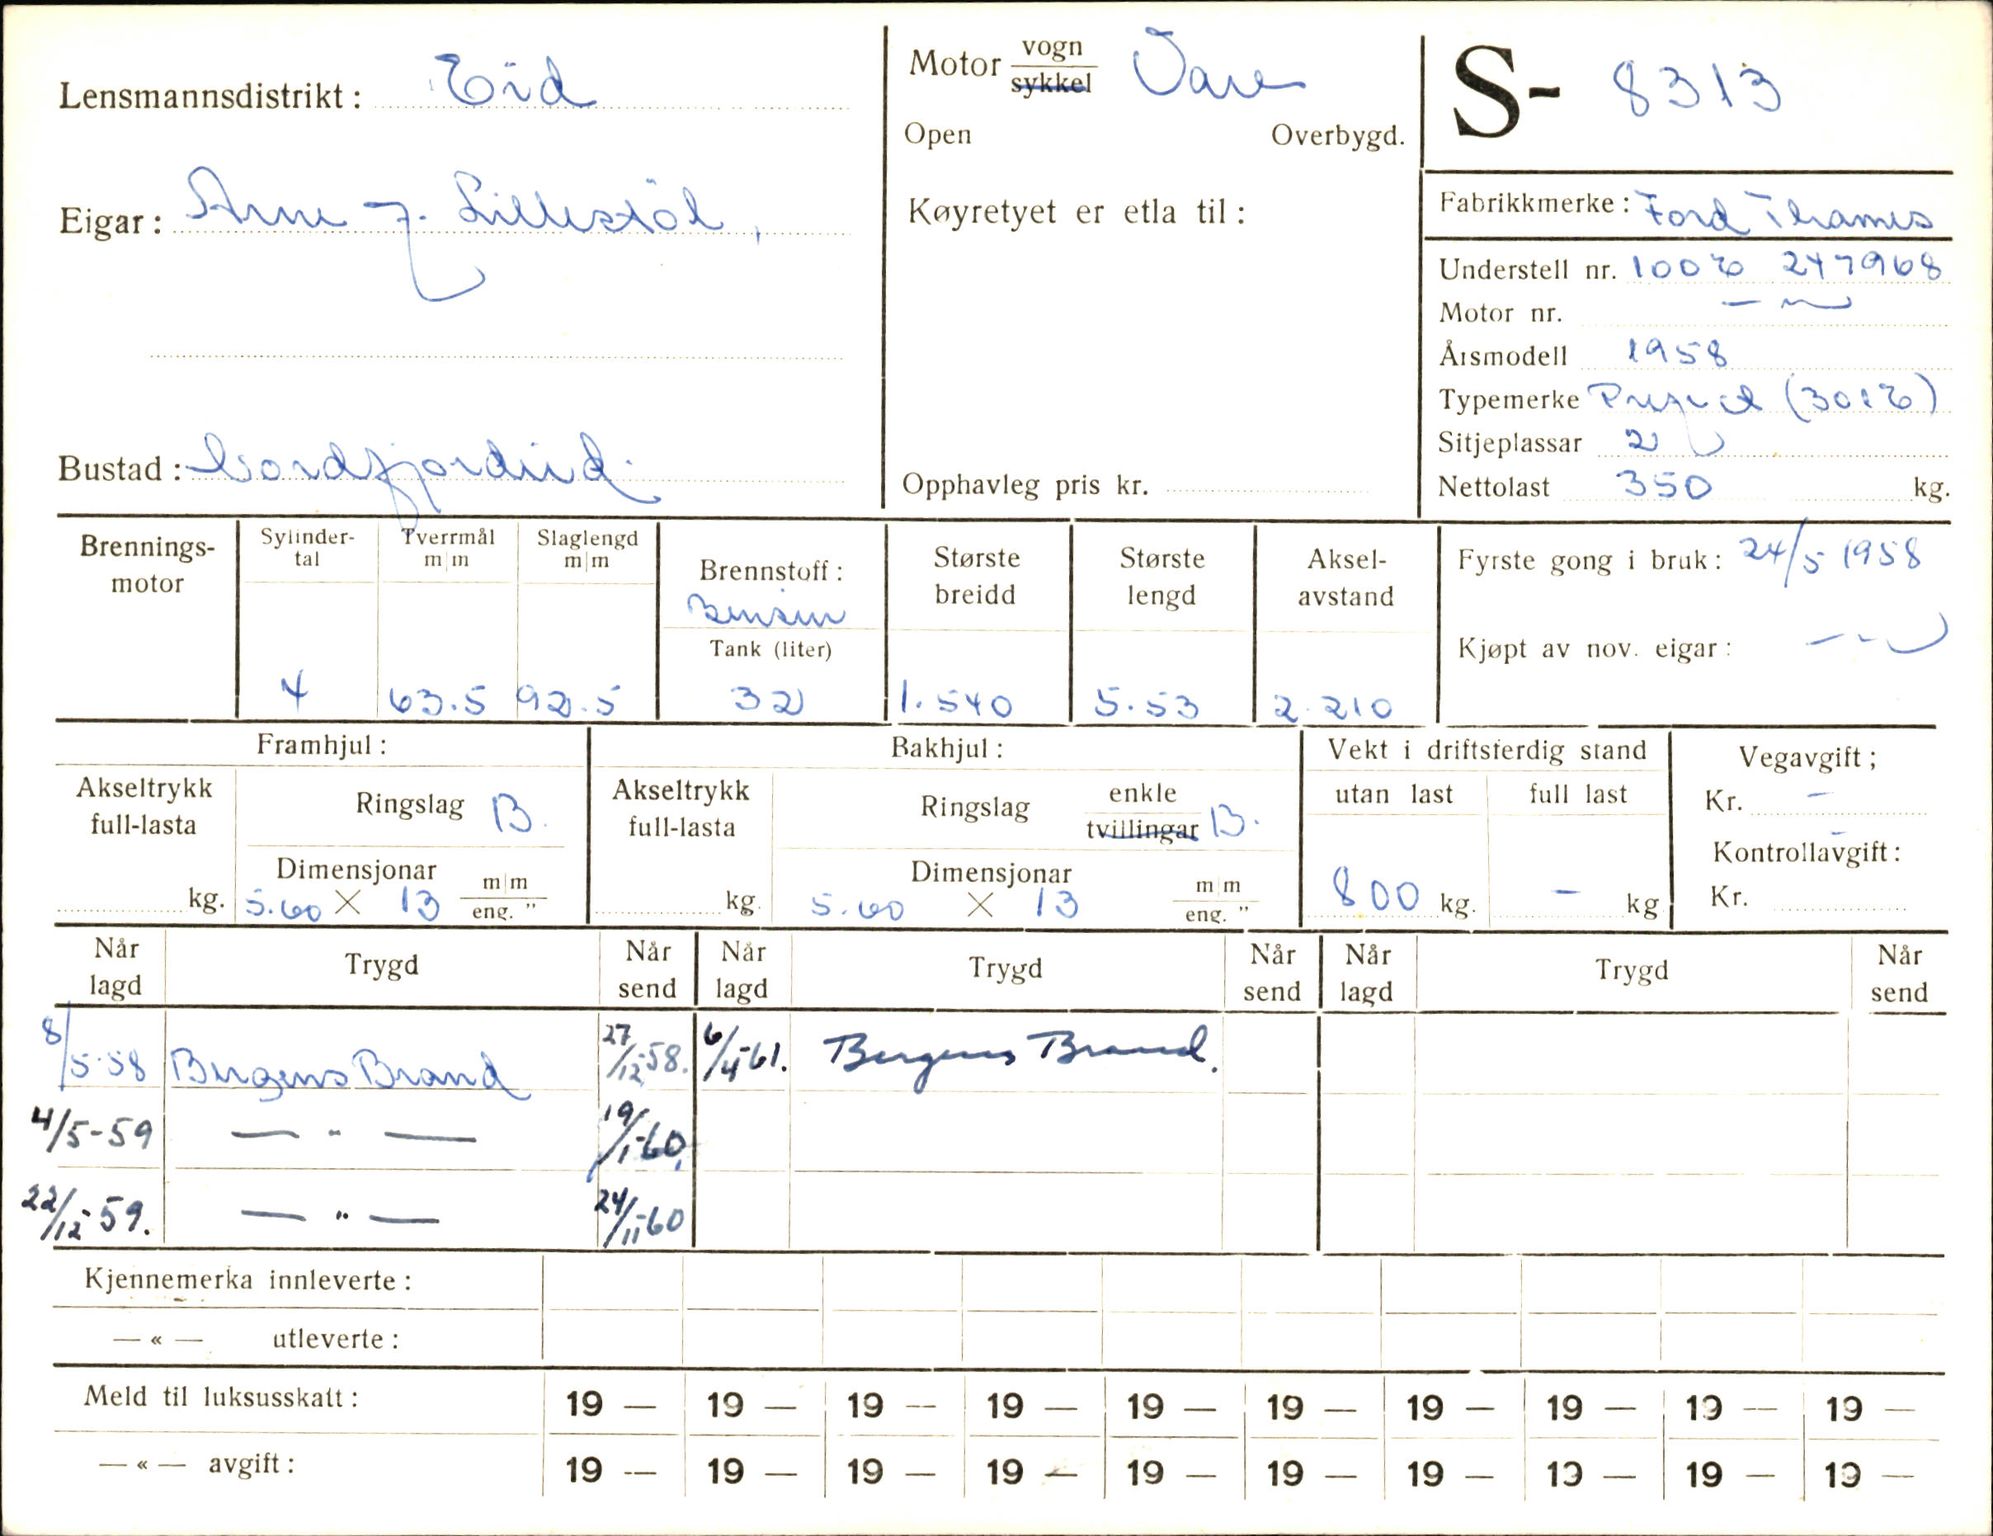 Lensmannsdistrikt: Eid
Eigar: Arne J. Lillestøl,
Bustad: Nordfjordeid.
Motor vogn / sykkel Vare
Open Overbygd.
Køyretyet er etla til:
Opphavleg pris kr.
S- 8313
Fabrikkmerke: Ford Thames
Understell nr. 100E 247968
Motor nr. — " —
Årsmodell 1958
Typemerke Prefect (301E)
Sitjeplassar 2
Nettolast 350 kg.
Brennings-motor
Sylinder-tal 4
Tverrmål m|m 63.5
Slaglengd m|m 92.5
Brennstoff: Bensin
Tank (liter) 32
Største breidd 1.540
Største lengd 5.53
Aksel-avstand 2.210
Fyrste gong i bruk: 24/5 1958
Kjøpt av nov. eigar: — " —
Framhjul:
Akseltrykk full-lasta kg.
Ringslag B.
Dimensjonar 5.60 X 13 m|m eng. "
Bakhjul:
Akseltrykk full-lasta kg.
Ringslag enkle tvillingar B.
Dimensjonar 5.60 X 13 m|m eng. "
Vekt i driftsferdig stand
utan last 800 kg.
full last - kg
Vegavgift;
Kr. -
Kontrollavgift:
Kr.
Når lagd Trygd Når send Når lagd Trygd Når send Når lagd Trygd Når send
8/5-58 Bergens Brand 27/12-58. 6/4-61. Bergens Brand.
4/5-59 — " — 19/1-60
22/12-59. — " — 24/11-60
Kjennemerka innleverte:
— « — utleverte:
Meld til luksusskatt: 19 — 19 — 19 — 19 — 19 — 19 — 19 — 19 — 19 — 19 —
— « — avgift: 19 — 19 — 19 — 19 — 19 — 19 — 19 — 19 — 19 — 19 —